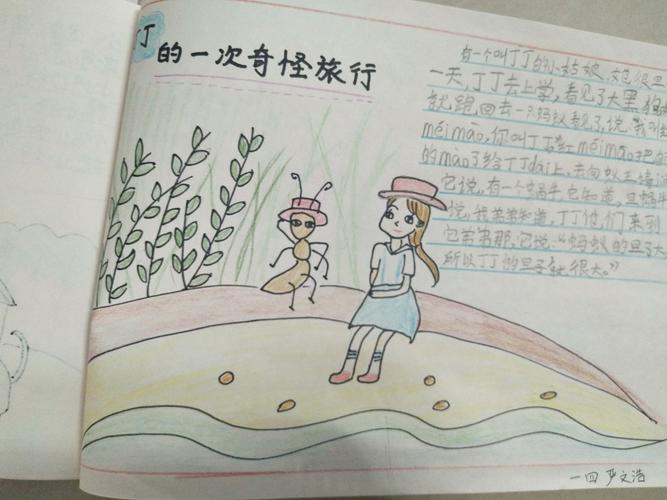 丁丁的一次奇怪旅行
有一个叫丁丁的小姑娘,她很
一天,丁丁去上学,看见了大黑狗
就跑回去一只蚂蚁看见了,说,
méi mào,你叫丁丁 méi mào,把
的mào子给丁丁dai上,去向蚁王请
它说,有一个蜗牛,它知道,
说,我爷爷知道,丁丁他们来到
它爷爷那,它说:“蚂蚁的旦子大
所以丁丁的旦子就很大。”
一四 严文浩